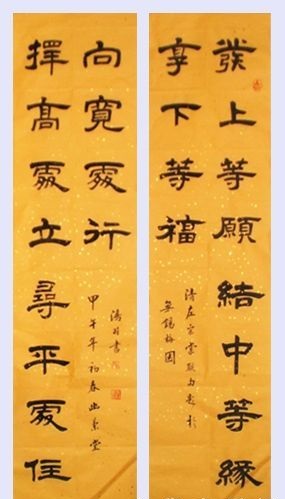 發上等願結中等緣
享下等福
清左宗棠聯句題於
無錫梅園
擇高處立尋平處住
向寬處行
甲午年初春